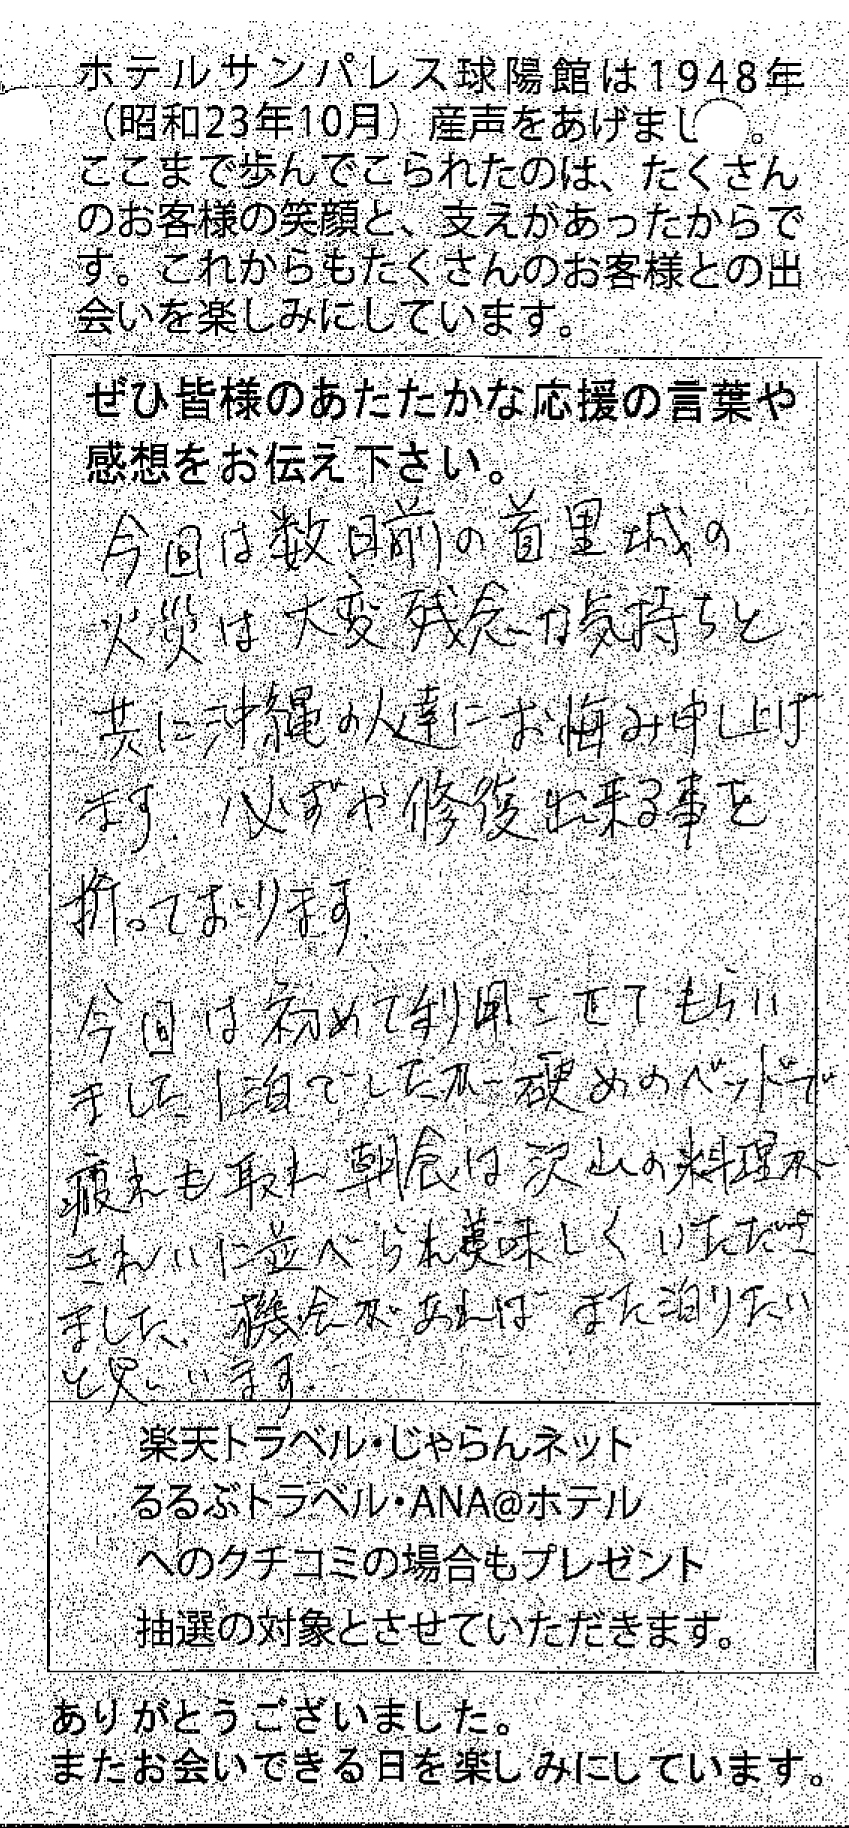 ホテルサンパレス球陽館は1948年
（昭和23年10月）産声をあげまし　。
ここまで歩んでこられたのは、たくさん
のお客様の笑顔と、支えがあったからで
す。これからもたくさんのお客様との出
会いを楽しみにしています。
ぜひ皆様のあたたかな応援の言葉や
感想をお伝え下さい。
今回は数日前の首里城の
火災は大変残念な気持ちと
共に沖縄の人達にお悔み申し上げ
ます。必ずや修復出来る事を
祈っております。
今回は初めて利用させてもらい
ました1泊でしたが硬めのベッドで
疲れも取れ朝食は沢山の料理が
きれいに並べられ美味しくいただき
ました、機会があればまた泊りたい
と思います。
楽天トラベル・じゃらんネット
るるぶトラベル・ANA@ホテル
へのクチコミの場合もプレゼント
抽選の対象とさせていただきます。
ありがとうございました。
またお会いできる日を楽しみにしています。